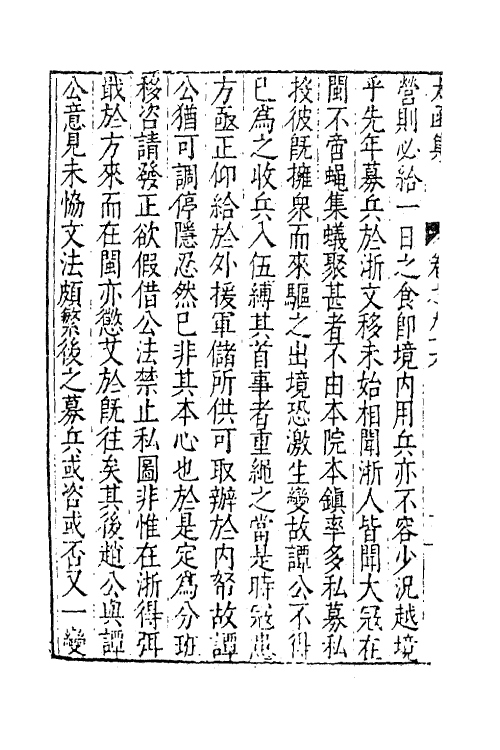 太函集 卷之九十六
營則必給一日之食即境内用兵亦不容少況越境
乎先年募兵於浙文移未始相聞浙人皆聞大冦在
閩不啻蝇集蟻聚甚者不由本院本鎮率多私募私
投彼既擁衆而來驅之出境恐激生變故譚公不得
已爲之收兵入伍縛其首事者重繩之當是時冦患
方亟正仰給於外援軍儲所供可取辦於内帑故譚
公猶可調停隱忍然已非其本心也於是定爲分班
移咨請發正欲假借公法禁止私圖非惟在浙得弭
戢於方來而在閩亦懲艾於既往矣其後趙公與譚
公意見未恊文法頗繁後之募兵或咨或否又一變